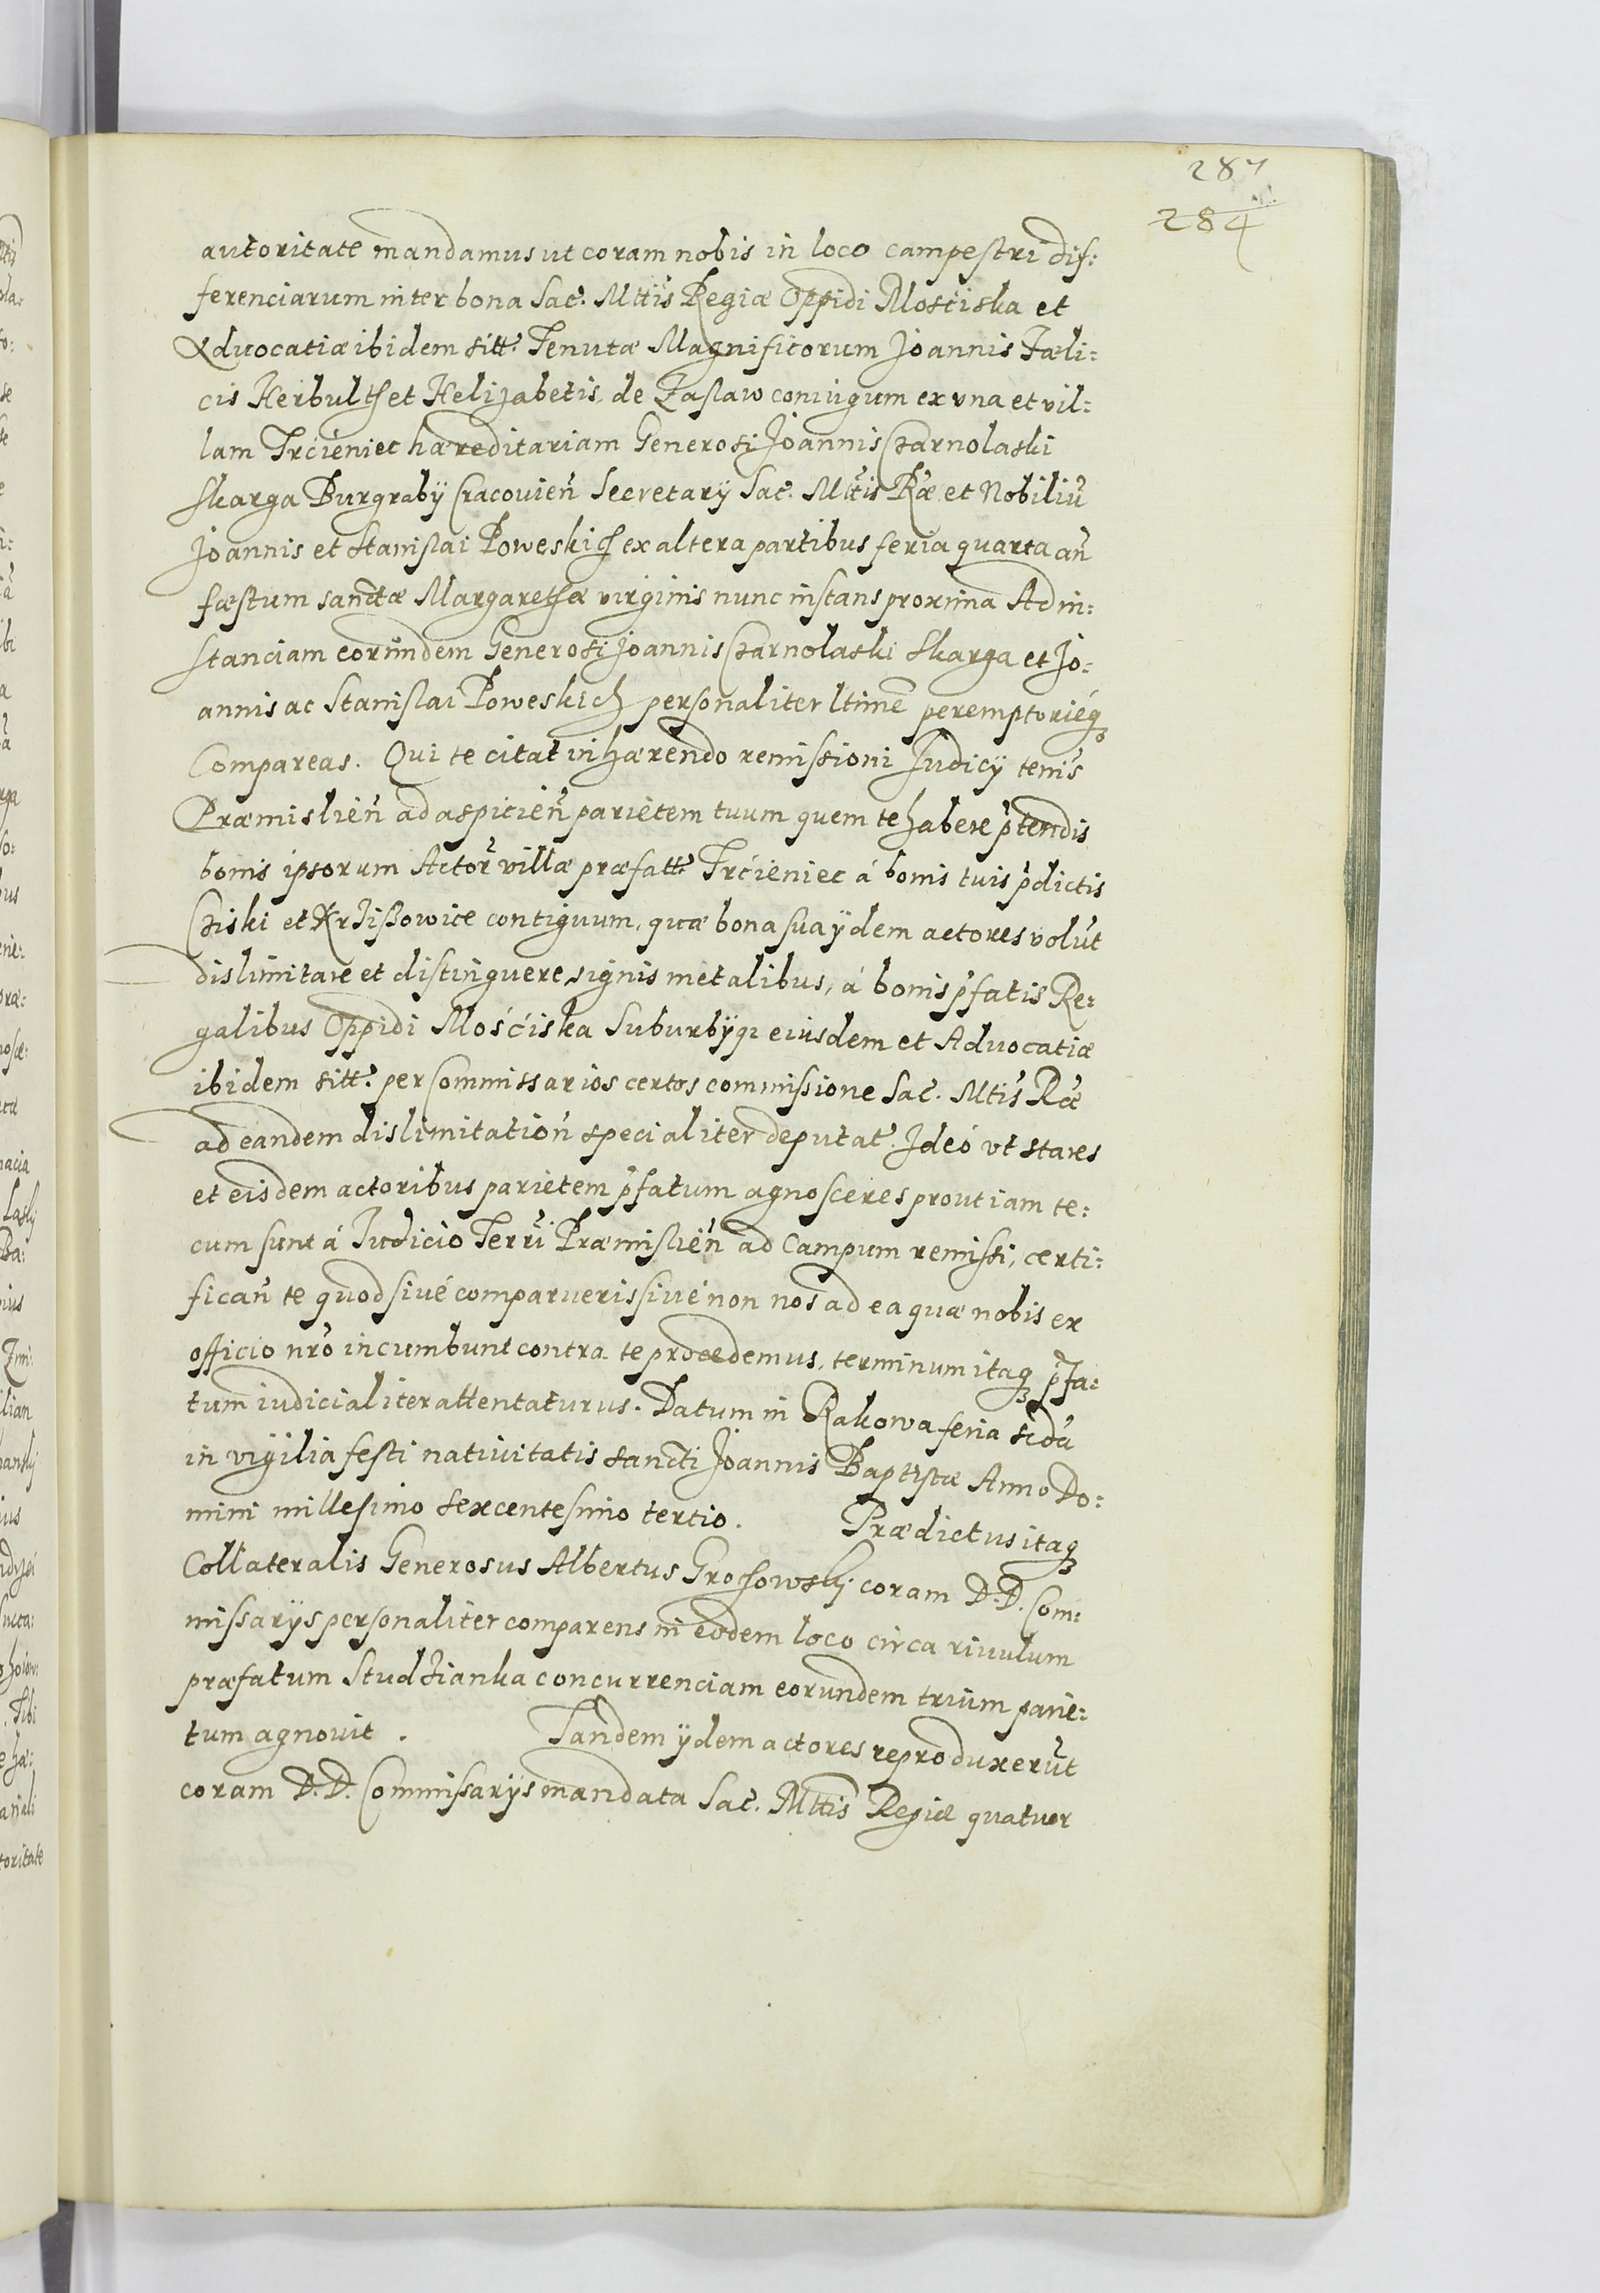 287
284
autoritate mandamus ut coram nobis in loco campestri dif:
ferenciarum inter bona Sac̃. Mttis Regiæ Oppidi Mosciska et
Advocatiæ ibidem sitt̃. Tenutæ Magnificorum Joannis Fæli:
cis Herbulth et Helizabetis de Zaslaw coniugum ex vna et vil:
lam Trcieniec hæreditariam Generosi Joannis Czarnolaski
Skarga Burgrabÿ Cracovien̄ Secretarÿ Sac̃. Mttis Ræ̃ et Nobiliũ
Joannis et Stanislai Poweskich ex altera partibus feria quarta an̄
fæstum sanctæ Margarethæ virginis nunc instans proxima Ad in:
stanciam eorundem Generosi Joannis Czarnolaski Skarga et Jo:
annis ac Stanislai Poweskich personaliter ltimē peremptorièq
Compareas. Qui te citat inhærendo remissioni Judicÿ tenis
Præmislien̄ ad aspicien̄ parietem tuum quem te habere p̃tendis
bonis ipsorum Actor̃ villæ præfatt̃ Trćieniec á bonis tuis p̃dictis
et Krzisowice contiguum, quæ bona sua ÿdem actores volũt
dislimitare et distinguere signis metalibus, á bonis p̃fatis Re:
galibus Oppidi Mośćiska Suburbÿqɜ eiusdem et Advocatiæ
ibidem sitt̃. per Commissarios certos commissione Sac̃. Mtis Ræ̃
ad eandem dislimitation̄ specialiter deputat̃. Ideó vt stares
et eisdem actoribus parietem p̃fatum agnosceres prout iam te:
cum sunt á Iudicio Terrĩ Præmislien̄ ad Campum remissi, certi:
fican̄ te quod sivé comparueris sivé non nos ad ea quæ nobis ex
officio nrõ incumbunt contra te procedemus, terminum itaqɜ p̃fa:
tum iudicialiter attentaturus. Datum in Rakowa feria scdã
in vigilia festi nativitatis sancti Joannis Baptistæ Anno Do:
mini millesimo sexcentesimo tertio. Prædictus itaqɜ
Collateralis Generosus Albertus Grochowskÿ coram D. D. Com:
missarÿs personaliter comparens in eodem loco circa rivulum
præfatum Studzianka concurrenciam eorundem trium parie:
tum agnovit. Tandem ÿdem actores reproduxerũt
coram D. D. Commissarÿs mandata Sac̃. Mttis Regiæ quatuor